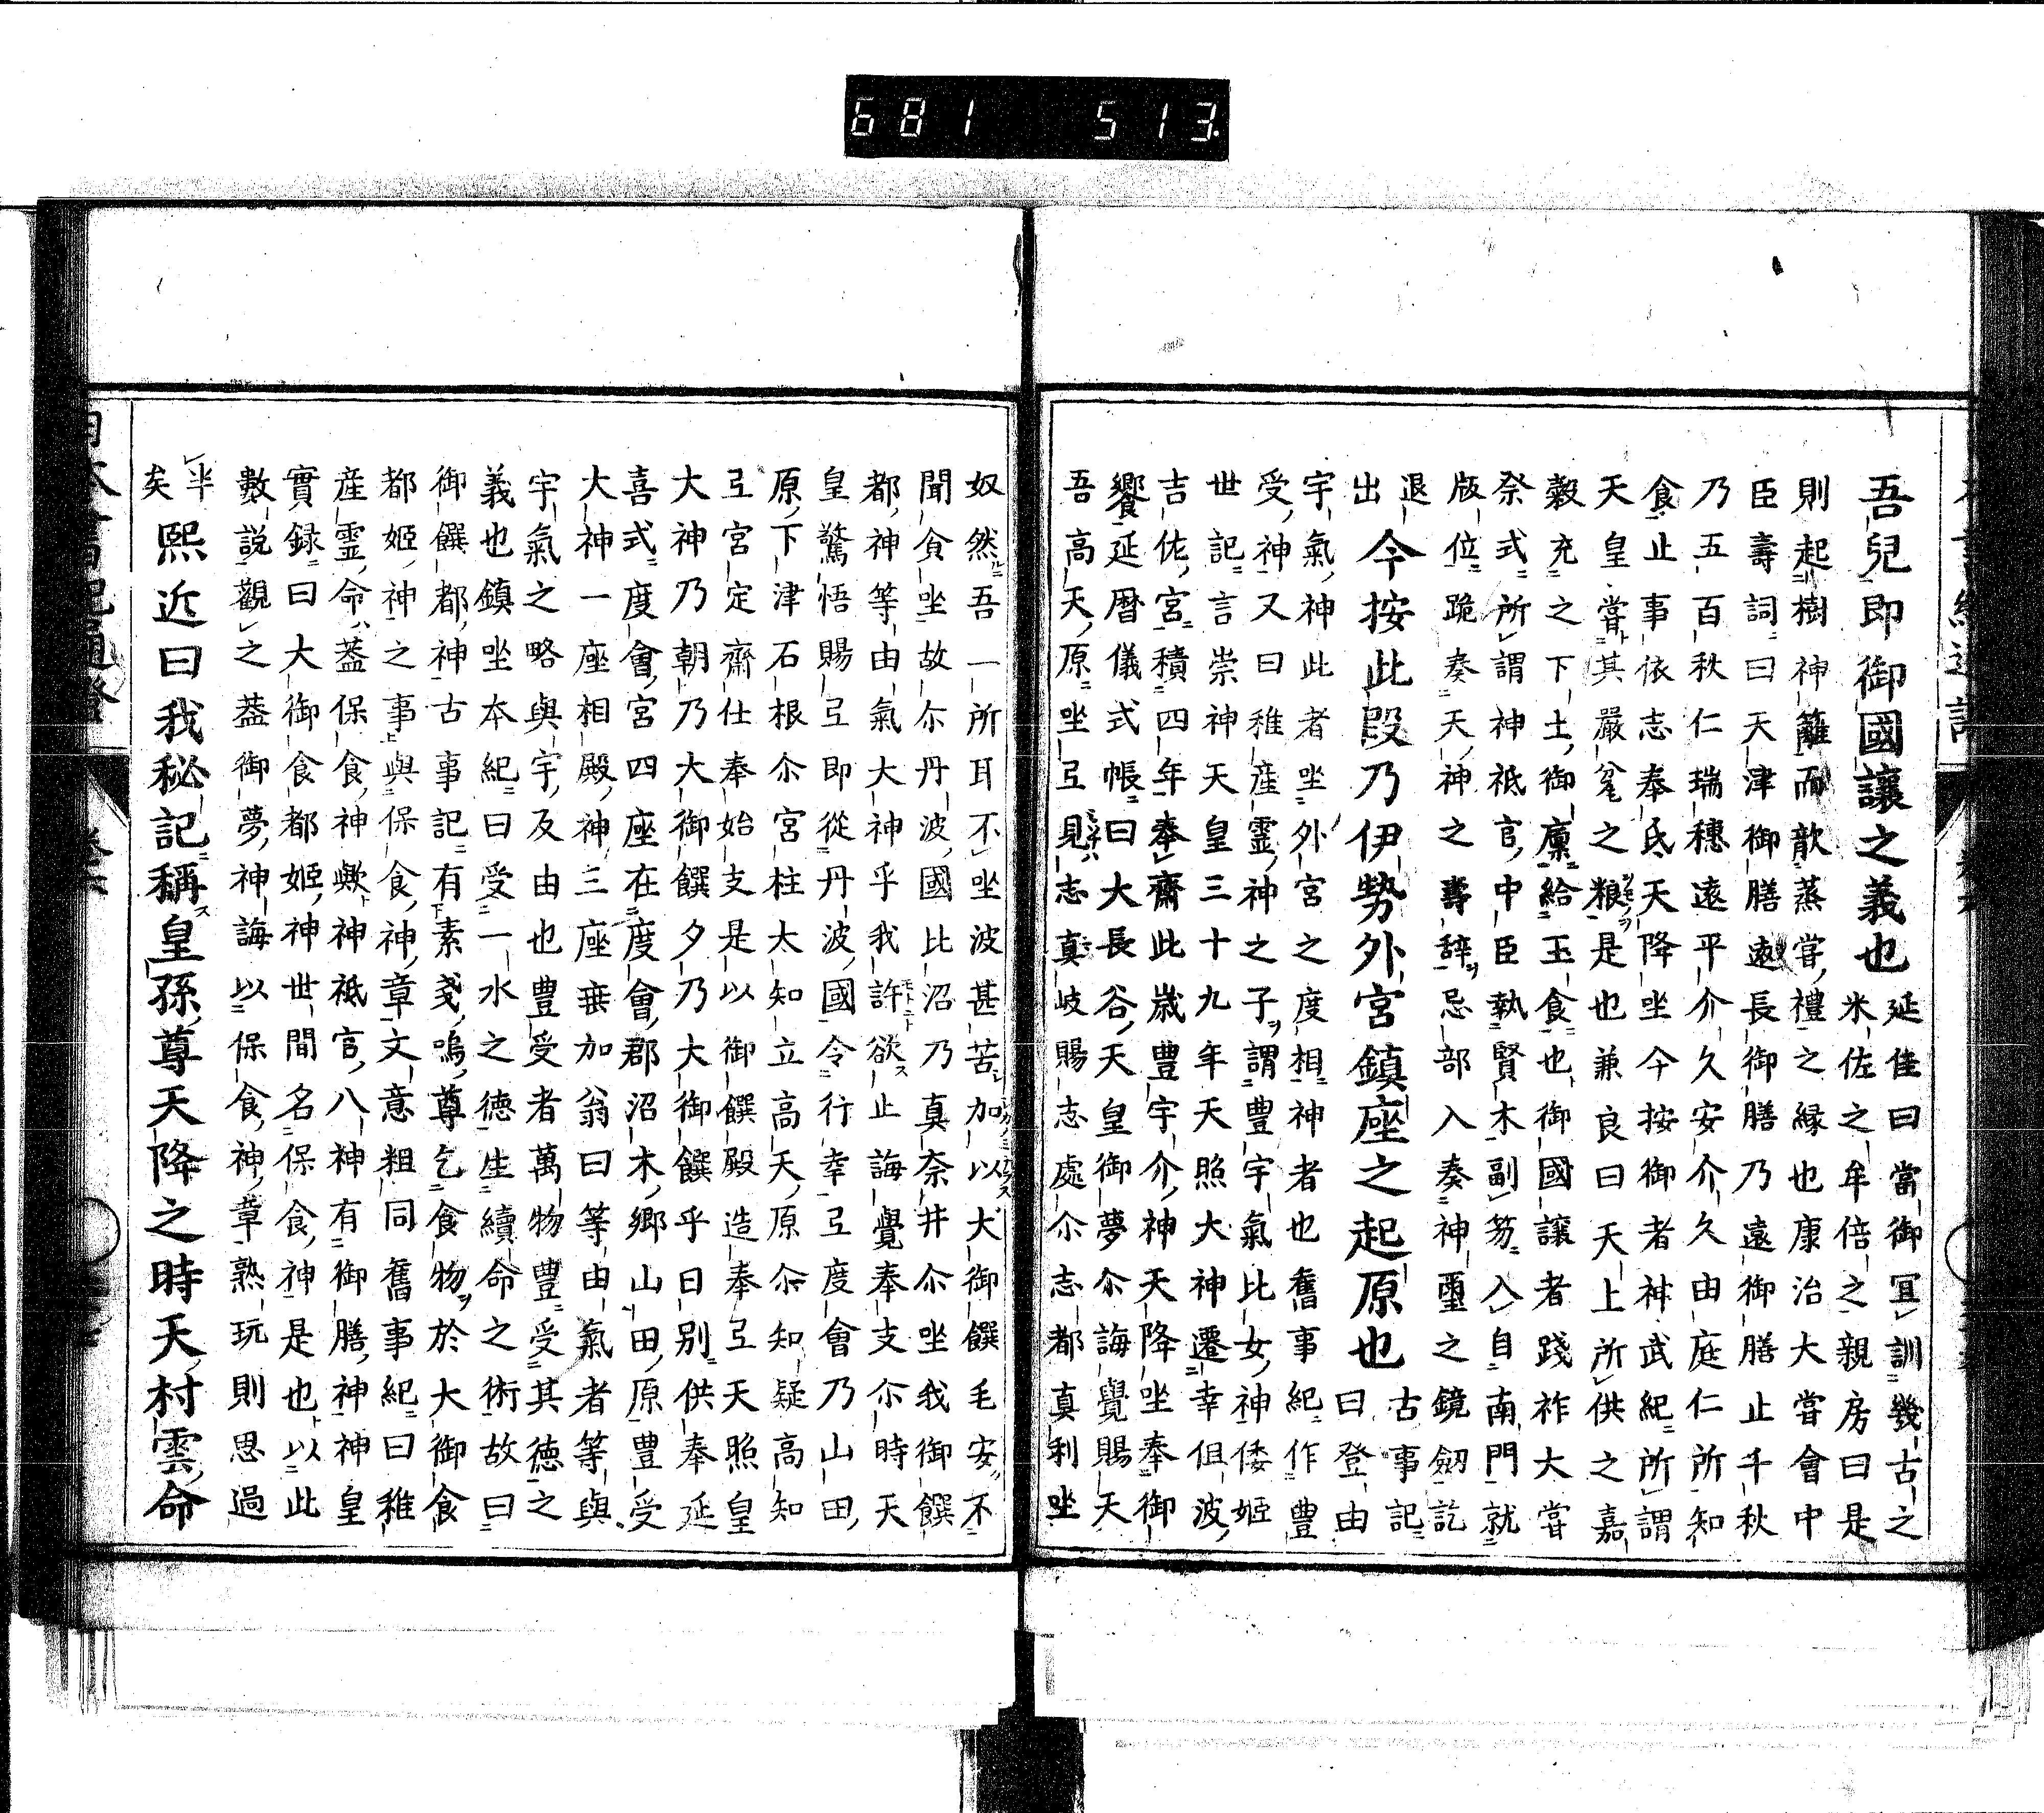 吾兒即御國讓之義也
延佳曰當御冝訓幾古之
米佐之牟倍之親房曰是
則起樹神籬而歆蒸嘗禮之縁也康治大嘗會中
臣壽詞曰天津御膳遠長御膳乃遠御膳止千秋
乃五百秋仁瑞穗遠平介久安介久由庭仁所知
食止事依志奉氐天降坐今按御者神武紀所謂
天皇嘗其嚴瓮之粮是也兼良曰天上所供之嘉
穀充之下土御廩給玉食也御國讓者踐祚大嘗
祭式所謂神祇官中臣執賢木副笏入自南門就
版位跪奏天神之壽辞忌部入奏神璽之鏡劔訖
退
出
今按此段乃伊勢外宮鎮座之起原也
古事記
曰登由
宇氣神此者坐外宮之度相神者也舊事紀作豊
受神又曰稚産霊神之子謂豊宇氣比女神倭姬
世記言崇神天皇三十九年天照大神遷幸但波
吉佐宮積四年奉齋此歳豊宇介神天降坐奉御
饗延暦儀式帳曰大長谷天皇御夢尒誨覺賜天
吾高天原坐弖見志真岐賜志處尒志都真利坐
奴然吾一所耳不坐波甚苦加以大御饌毛安不
聞食坐故尒丹波國比沼乃真奈井尒坐我御饌
都神等由氣大神乎我許欲止誨覺奉支尒時天
皇驚悟賜弖即從丹波國令行幸弖度會乃山田
原下津石根尒宮柱太知立高天原尒知疑高知
弖宮定齋仕奉始支是以御饌殿造奉弖天照皇
大神乃朝乃大御饌夕乃大御饌乎日別供奉延
喜式度會宮四座在度會郡沼木郷山田原豊受
大神一座相殿神三座垂加翁曰等由氣者等與
宇氣之略與宇反由也豊受者萬物豊受其徳之
義也鎮坐本紀曰受一水之徳生續命之術故曰
御饌都神古事記有素戔嗚尊乞食物於大御食
都姬神之事與保食神章文意粗同舊事紀曰稚
産霊命蓋保食神歟神祇官八神有御膳神神皇
實録曰大御食都姬神世間名保食神是也以此
數説觀之蓋御夢神誨以保食神章熟玩則思過
半
矣
熙近曰我秘記稱皇孫尊天降之時天村雲命
681 513